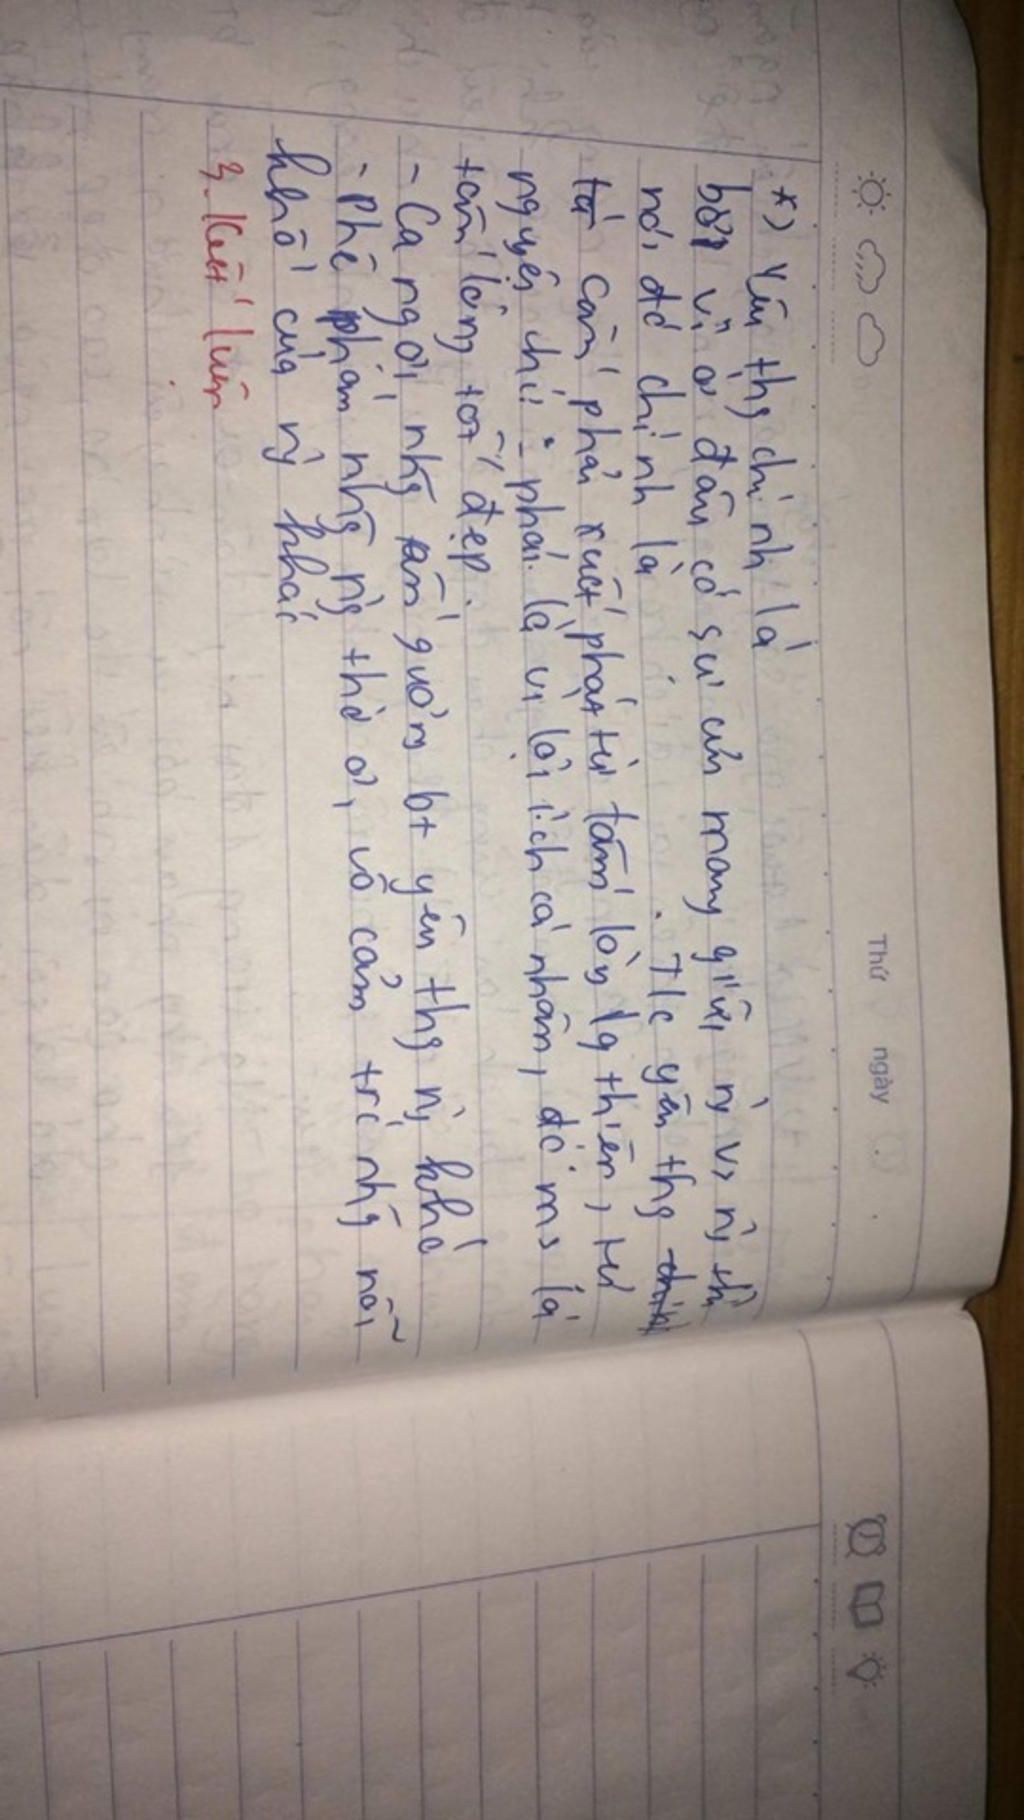 Thứ ngày
*) Yêu thg chính là
bởi vì ở đâu có sự cưu mang giữa ng vs ng thì
nơi đó chính là . T/c yêu thg
cần phải xuất phát từ tấm lòng lg thiện, tự
nguyện chứ phải là vì lợi ích cá nhân, đó ms là
tấm lòng tốt đẹp.
- Ca ngợi nhg tấm gương bt yêu thg ng khác
- Phê phán nhg ng thờ ơ, vô cảm trc nhg nỗi
khổ của ng khác
3. Kết luận